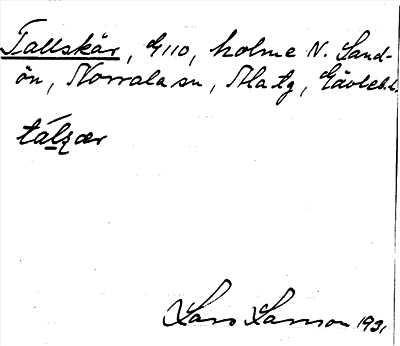 Tallskär, G110, holme N. Sand-
ön, Norrala sn, Ala tg, Gävleb. l.
Lars Larsson 1931